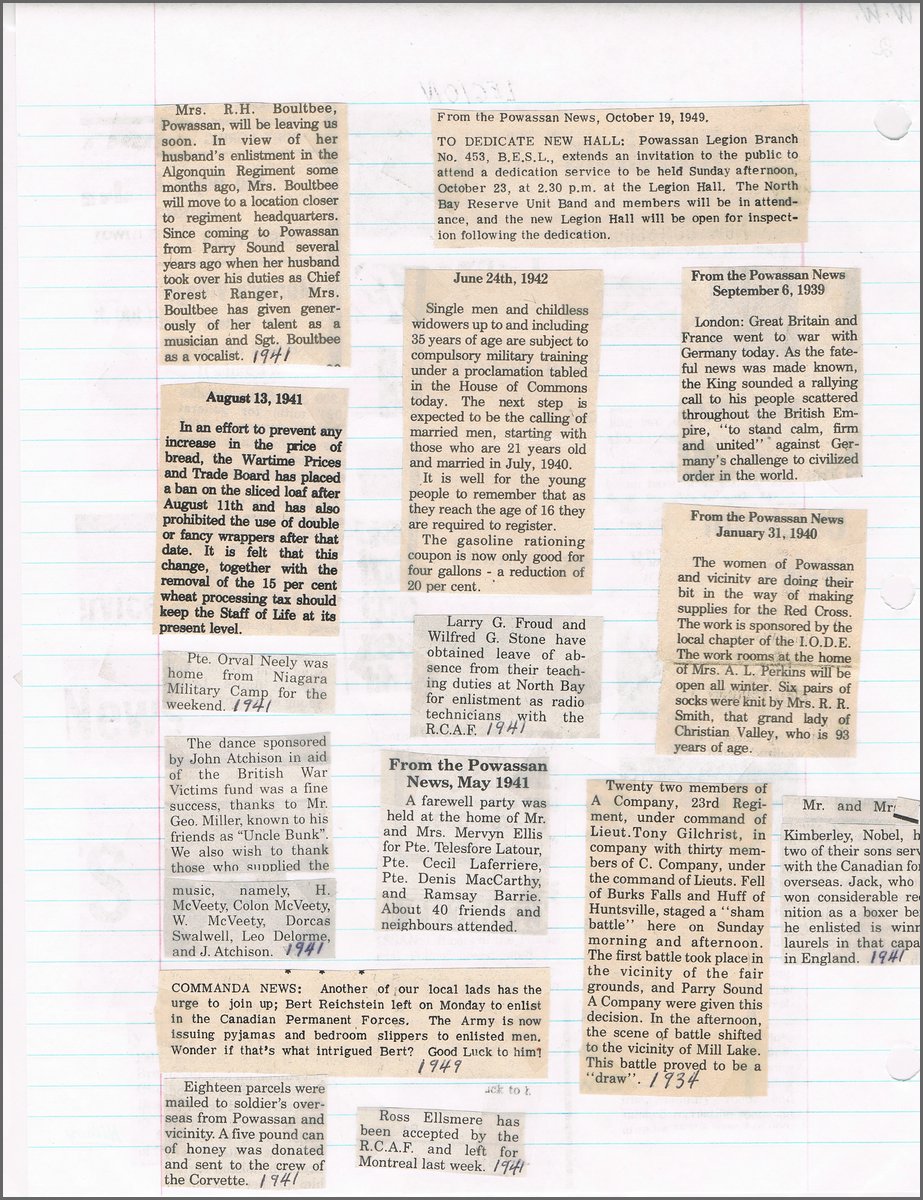 Mrs. R.H. Boultbee,
Powassan, will be leaving us
soon. In view of her
husband's enlistment in the
Algonquin Regiment some
months ago, Mrs. Boultbee
will move to a location closer
to regiment headquarters.
Since coming to Powassan
from Parry Sound several
years ago when her husband
took over his duties as Chief
Forest Ranger, Mrs.
Boultbee has given gener-
ously of her talent as a
musician and Sgt. Boultbee
as a vocalist. 1941
August 13, 1941
In an effort to prevent any
increase in the price of
bread, the Wartime Prices
and Trade Board has placed
a ban on the sliced loaf after
August 11th and has also
prohibited the use of double
or fancy wrappers after that
date. It is felt that this
change, together with the
removal of the 15 per cent
wheat processing tax should
keep the Staff of Life at its
present level.
Pte. Orval Neely was
home from Niagara
Military Camp for the
weekend. 1941
The dance sponsored
by John Atchison in aid
of the British War
Victims fund was a fine
success, thanks to Mr.
Geo. Miller, known to his
friends as "Uncle Bunk".
We also wish to thank
those who supplied the
music, namely, H.
McVeety, Colon McVeety,
W. McVeety, Dorcas
Swalwell, Leo Delorme,
and J. Atchison. 1941
* * *
COMMANDA NEWS: Another of our local lads has the
urge to join up; Bert Reichstein left on Monday to enlist
in the Canadian Permanent Forces. The Army is now
issuing pyjamas and bedroom slippers to enlisted men.
Wonder if that's what intrigued Bert? Good Luck to him!
1949
Eighteen parcels were
mailed to soldier's over-
seas from Powassan and
vicinity. A five pound can
of honey was donated
and sent to the crew of
the Corvette. 1941
From the Powassan News, October 19, 1949.
TO DEDICATE NEW HALL: Powassan Legion Branch
No. 453, B.E.S.L., extends an invitation to the public to
attend a dedication service to be held Sunday afternoon,
October 23, at 2.30 p.m. at the Legion Hall. The North
Bay Reserve Unit Band and members will be in attend-
ance, and the new Legion Hall will be open for inspect-
ion following the dedication.
June 24th, 1942
Single men and childless
widowers up to and including
35 years of age are subject to
compulsory military training
under a proclamation tabled
in the House of Commons
today. The next step is
expected to be the calling of
married men, starting with
those who are 21 years old
and married in July, 1940.
It is well for the young
people to remember that as
they reach the age of 16 they
are required to register.
The gasoline rationing
coupon is now only good for
four gallons - a reduction of
20 per cent.
Larry G. Froud and
Wilfred G. Stone have
obtained leave of ab-
sence from their teach-
ing duties at North Bay
for enlistment as radio
technicians with the
R.C.A.F. 1941
From the Powassan
News, May 1941
A farewell party was
held at the home of Mr.
and Mrs. Mervyn Ellis
for Pte. Telesfore Latour,
Pte. Cecil Laferriere,
Pte. Denis MacCarthy,
and Ramsay Barrie.
About 40 friends and
neighbours attended.
Ross Ellsmere has
been accepted by the
R.C.A.F. and left for
Montreal last week. 1941
From the Powassan News
September 6, 1939
London: Great Britain and
France went to war with
Germany today. As the fate-
ful news was made known,
the King sounded a rallying
call to his people scattered
throughout the British Em-
pire, "to stand calm, firm
and united" against Ger-
many's challenge to civilized
order in the world.
From the Powassan News
January 31, 1940
The women of Powassan
and vicinity are doing their
bit in the way of making
supplies for the Red Cross.
The work is sponsored by the
local chapter of the I.O.D.E.
The work rooms at the home
of Mrs. A. L. Perkins will be
open all winter. Six pairs of
socks were knit by Mrs. R. R.
Smith, that grand lady of
Christian Valley, who is 93
years of age.
Twenty two members of
A Company, 23rd Regi-
ment, under command of
Lieut. Tony Gilchrist, in
company with thirty mem-
bers of C. Company, under
the command of Lieuts. Fell
of Burks Falls and Huff of
Huntsville, staged a "sham
battle" here on Sunday
morning and afternoon.
The first battle took place in
the vicinity of the fair
grounds, and Parry Sound
A Company were given this
decision. In the afternoon,
the scene of battle shifted
to the vicinity of Mill Lake.
This battle proved to be a
"draw". 1934
Mr. and Mr
Kimberley, Nobel, h
two of their sons serv
with the Canadian fo
overseas. Jack, who
won considerable re
nition as a boxer be
he enlisted is winn
laurels in that capa
in England. 1941